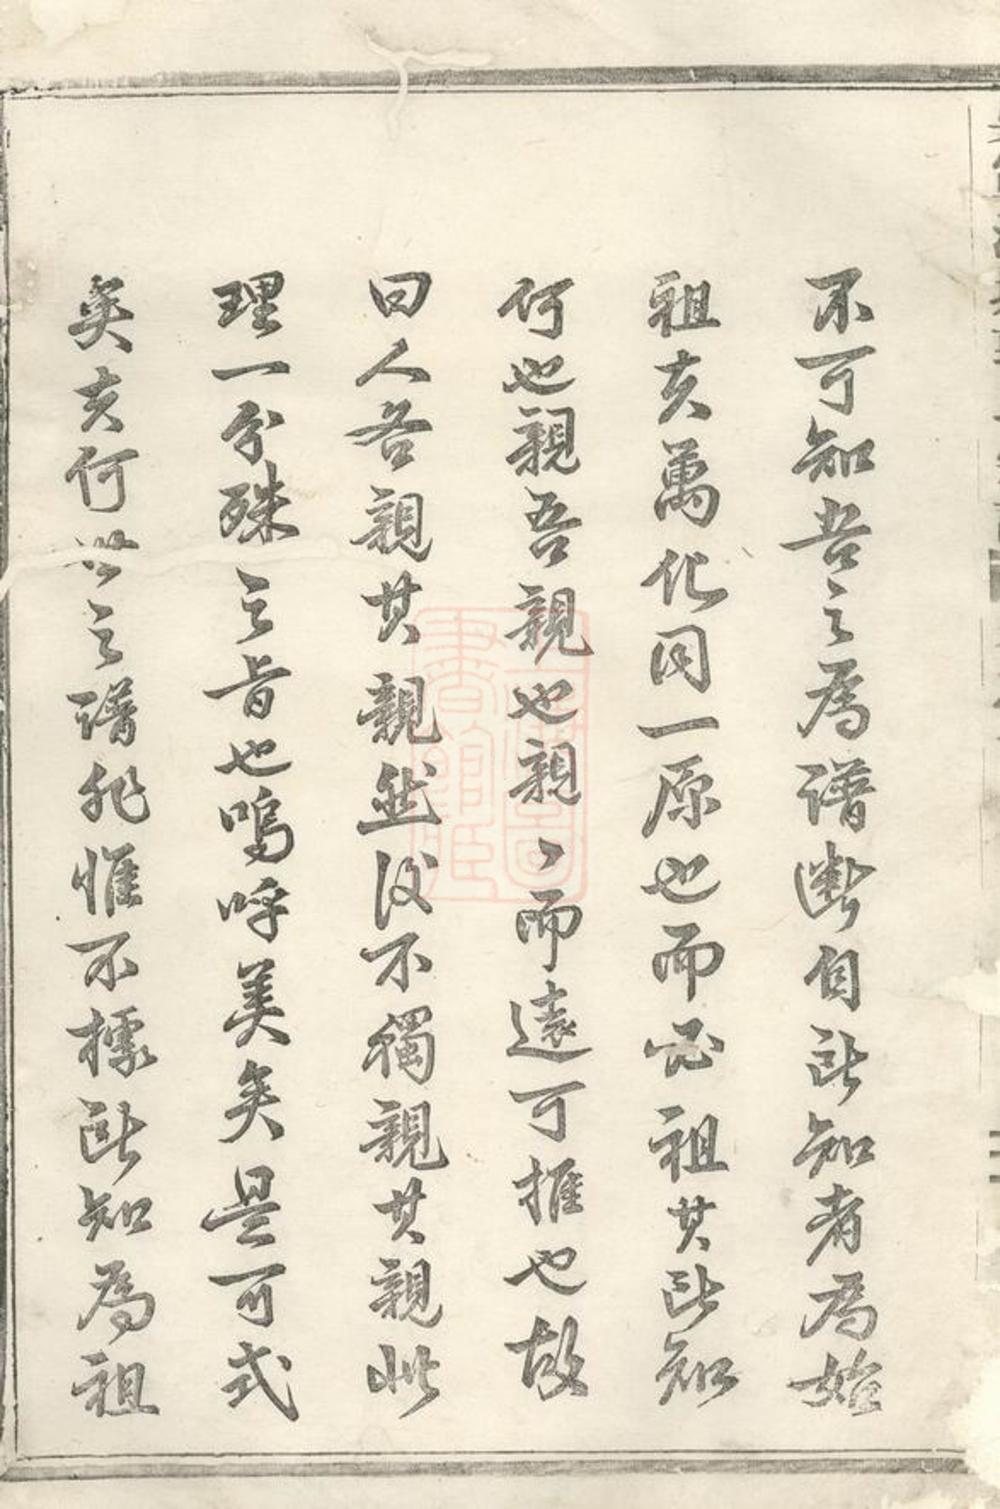 不可知吾之為譜斷自所知者為始
祖夫萬化同一原也而必祖其所知
何也親吾親也親〻而遠可推也故
曰人各親其親然後不獨親其親此
理一分殊之旨也嗚呼美矣是可式
矣夫何世之譜非惟不據所知為祖